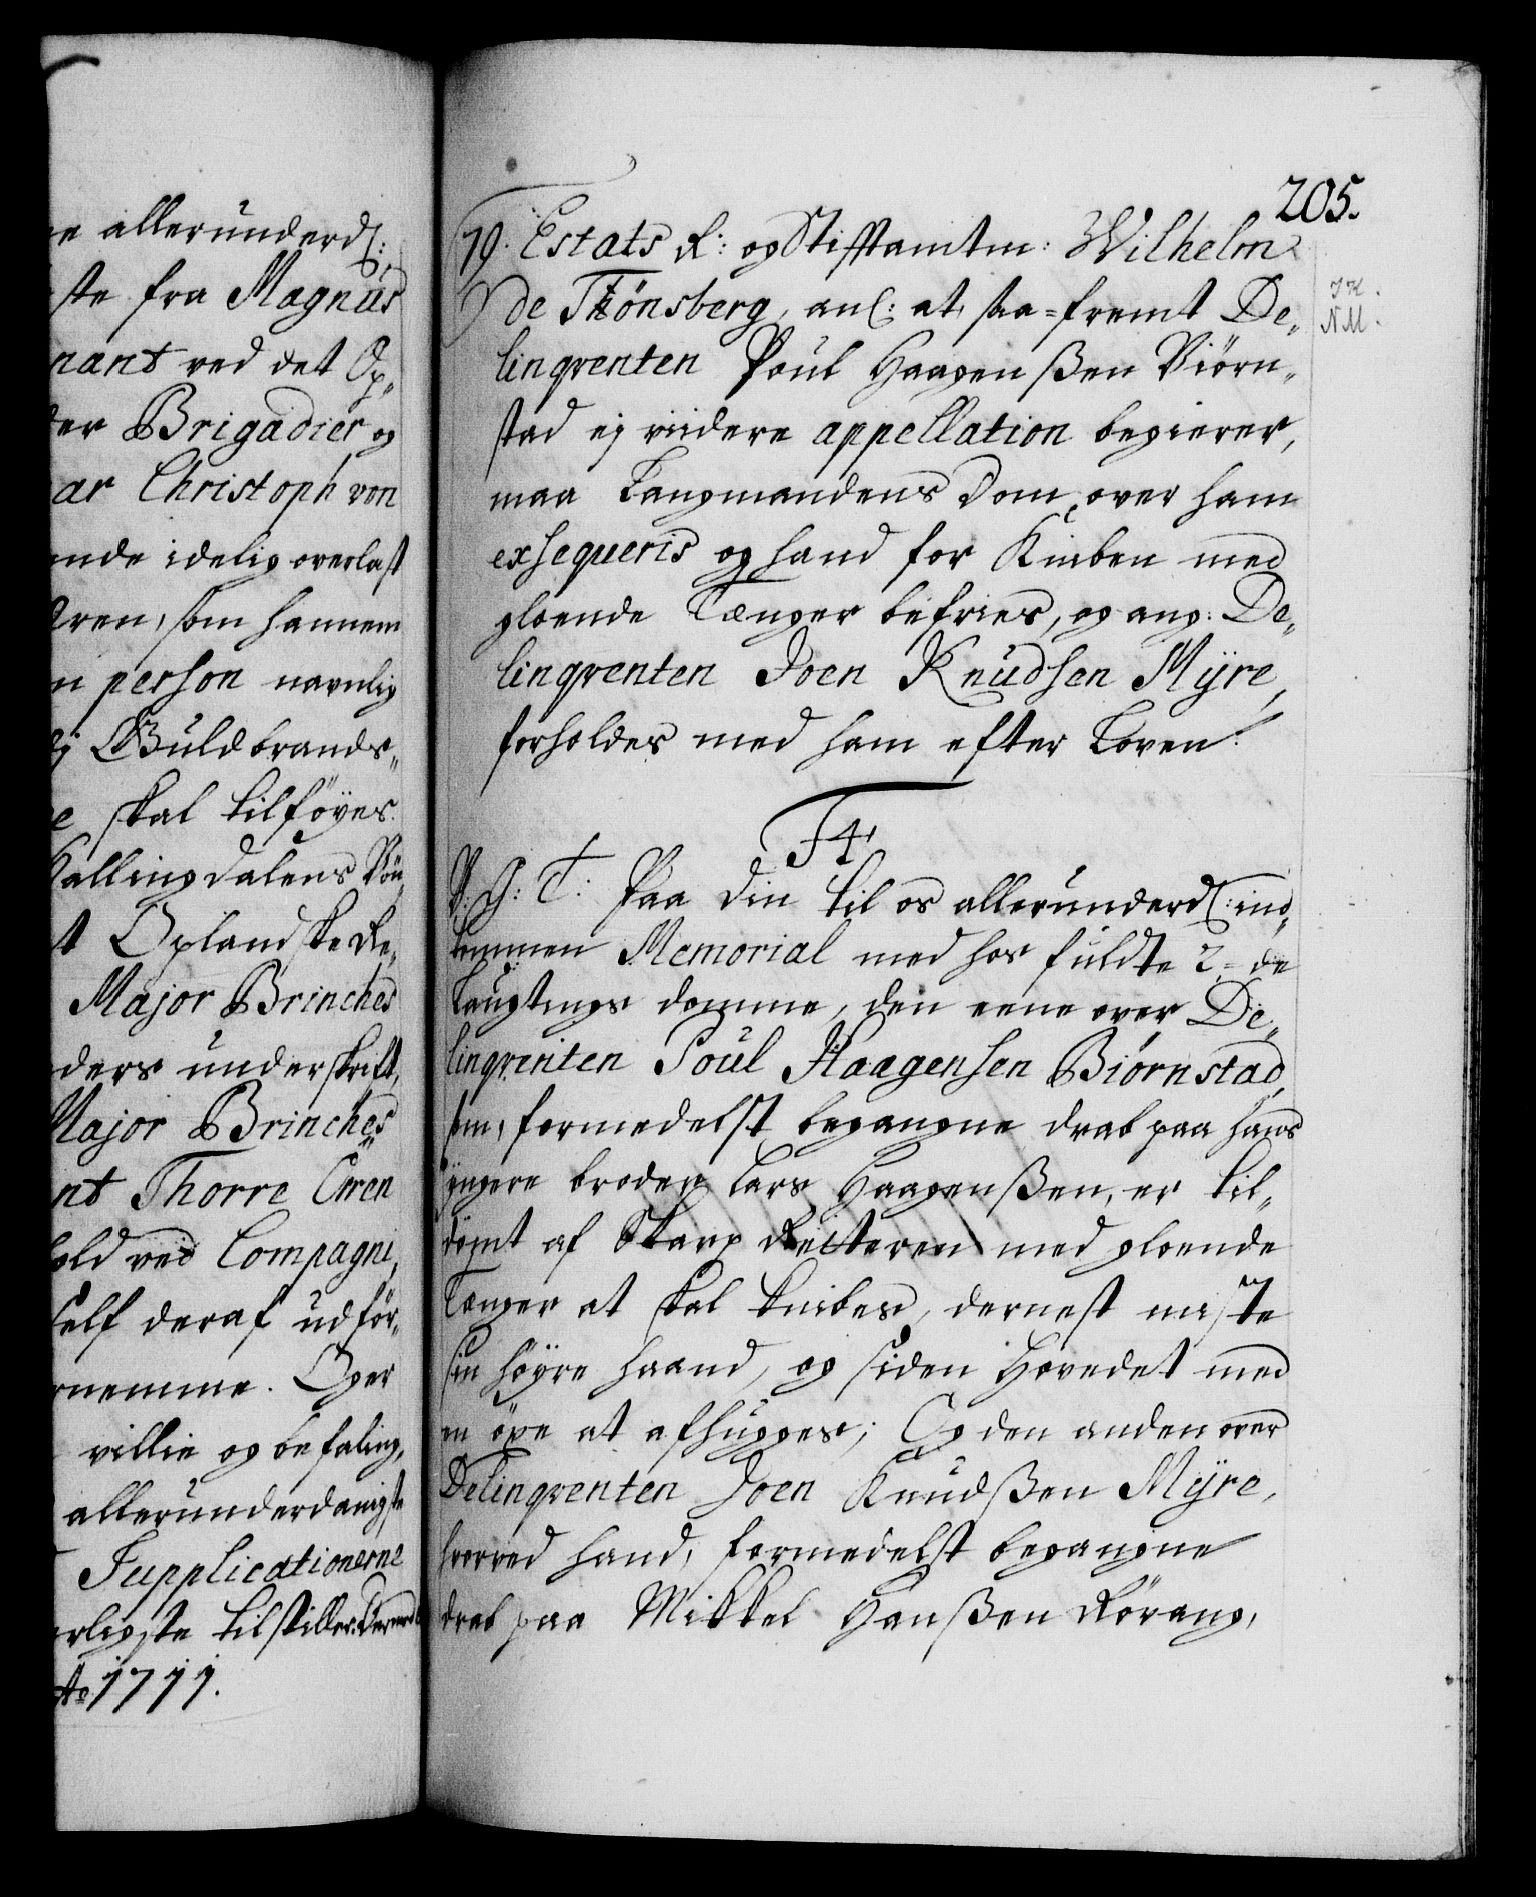 e allerunderd:
ste fra Magnus
nant ved det Op„
der Brigadier og
ar Christoph von
ende idelig overlast
dren, som hannem
n person navnlig
Guldbrands„
e skal tilföyes.
Hallingdalens
t Oplandske Re„
Major Brinches
ders underskrift,
Major Brinches
nt Thorre Oren
hold ved Compagni,
self deraf udför„
rnemme. Oper
villie og befaling,
allerunderdanigste
Supplicationerne
rligste tilstilles.
Ao 1711.
205.
79. Estats R: og Stifftamtm: Wilhelm
de Tönsberg, anl: at, saa=fremt De„
linqventen Poul Haagenßen Biörn„
stad ej viidere appellation begierer,
maa Laugmandens Dom over ham
exseqveris og hand for Kniben med
gloende Tænger befries, og ang: De„
linqventen Joen Knudsen Myre,
forholdes med ham efter Loven.
F4.
V: G: T: Paa din til os allerunderd: ind„
kommen Memorial med hos fuldte 2=de
Laugtings domme, den eene over De„
linqventen Poul Haagensen Biørnstad,
som, formedelst begangne drab paa hans
yngere broder Lars Haagenßen, er til„
dömt af Skarp Retteren med gloende
Tænger at skal knibes, dernest miste
sin höyre haand, og siden Hovedet med
en öxe at afhugges; Og den anden over
Delinqventen Joen Knudßen Myre,
hvorved hand, formedelst begangne
drab paa Mikkel Hanßen Rörang,
NM.